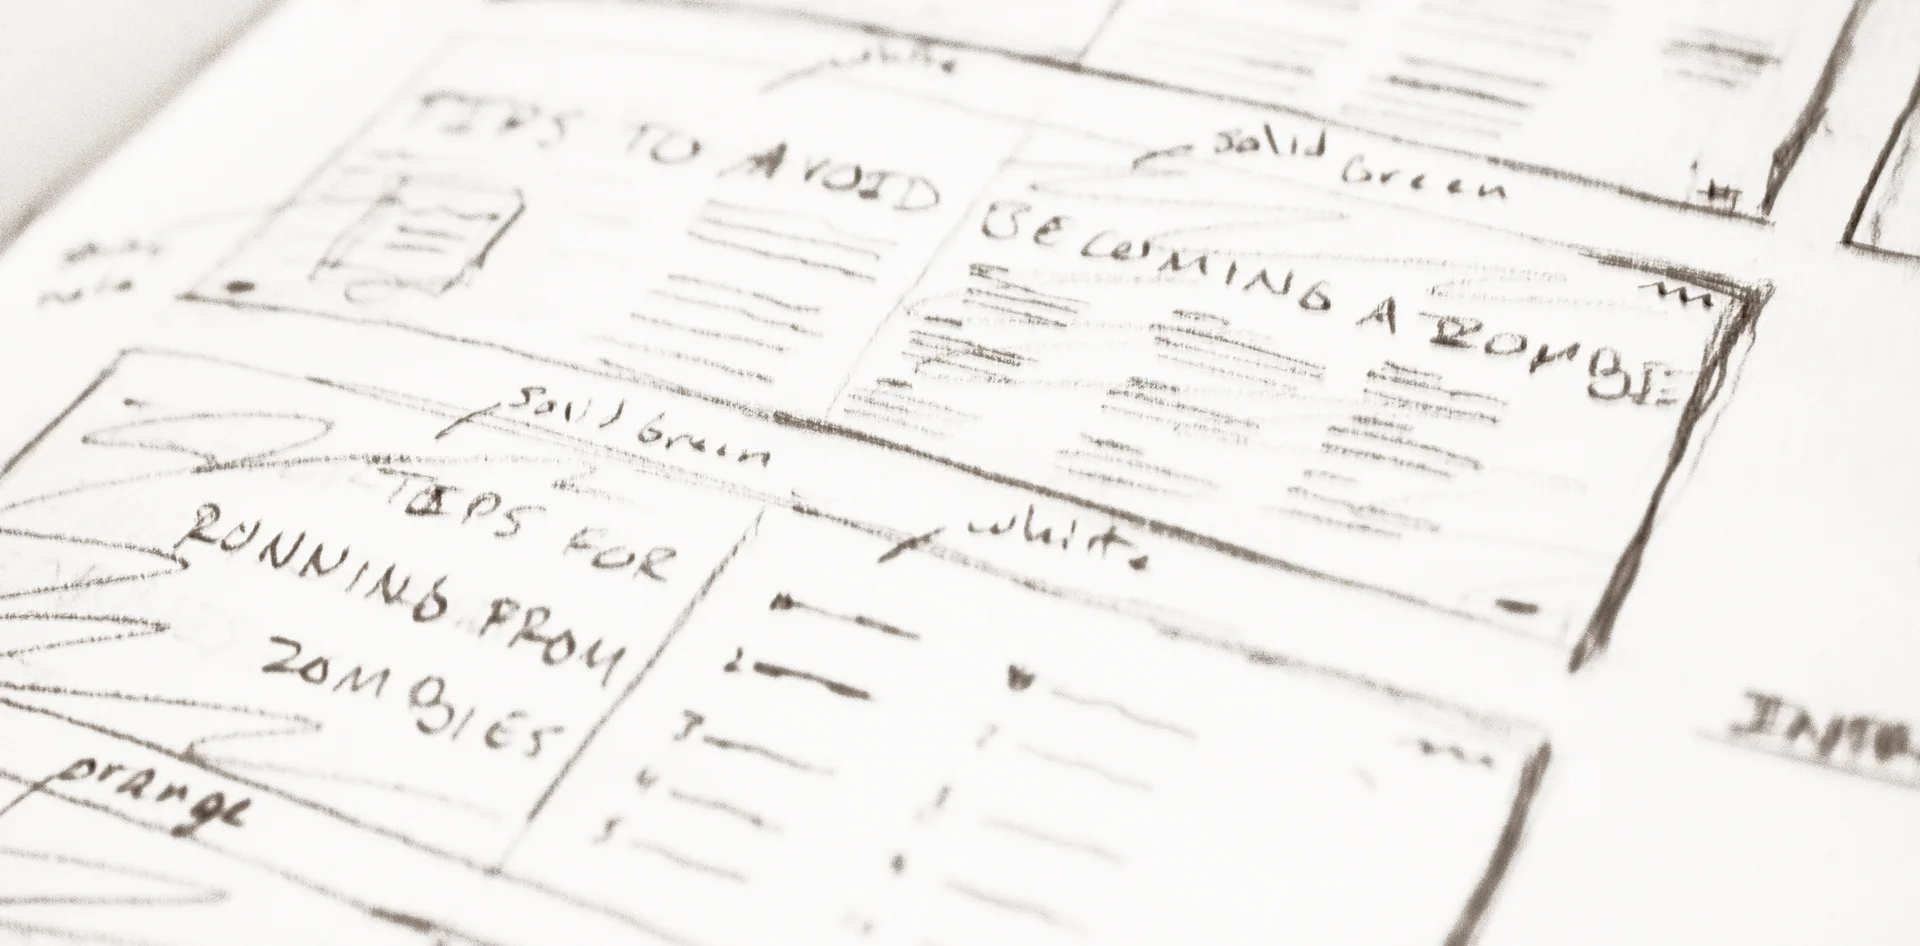 white
TIPS TO AVOID
solid
Green
BECOMING A ZOMBIE
solid Green
TIPS FOR
RUNNING FROM
ZOMBIES
white
2
3
4
5
orange